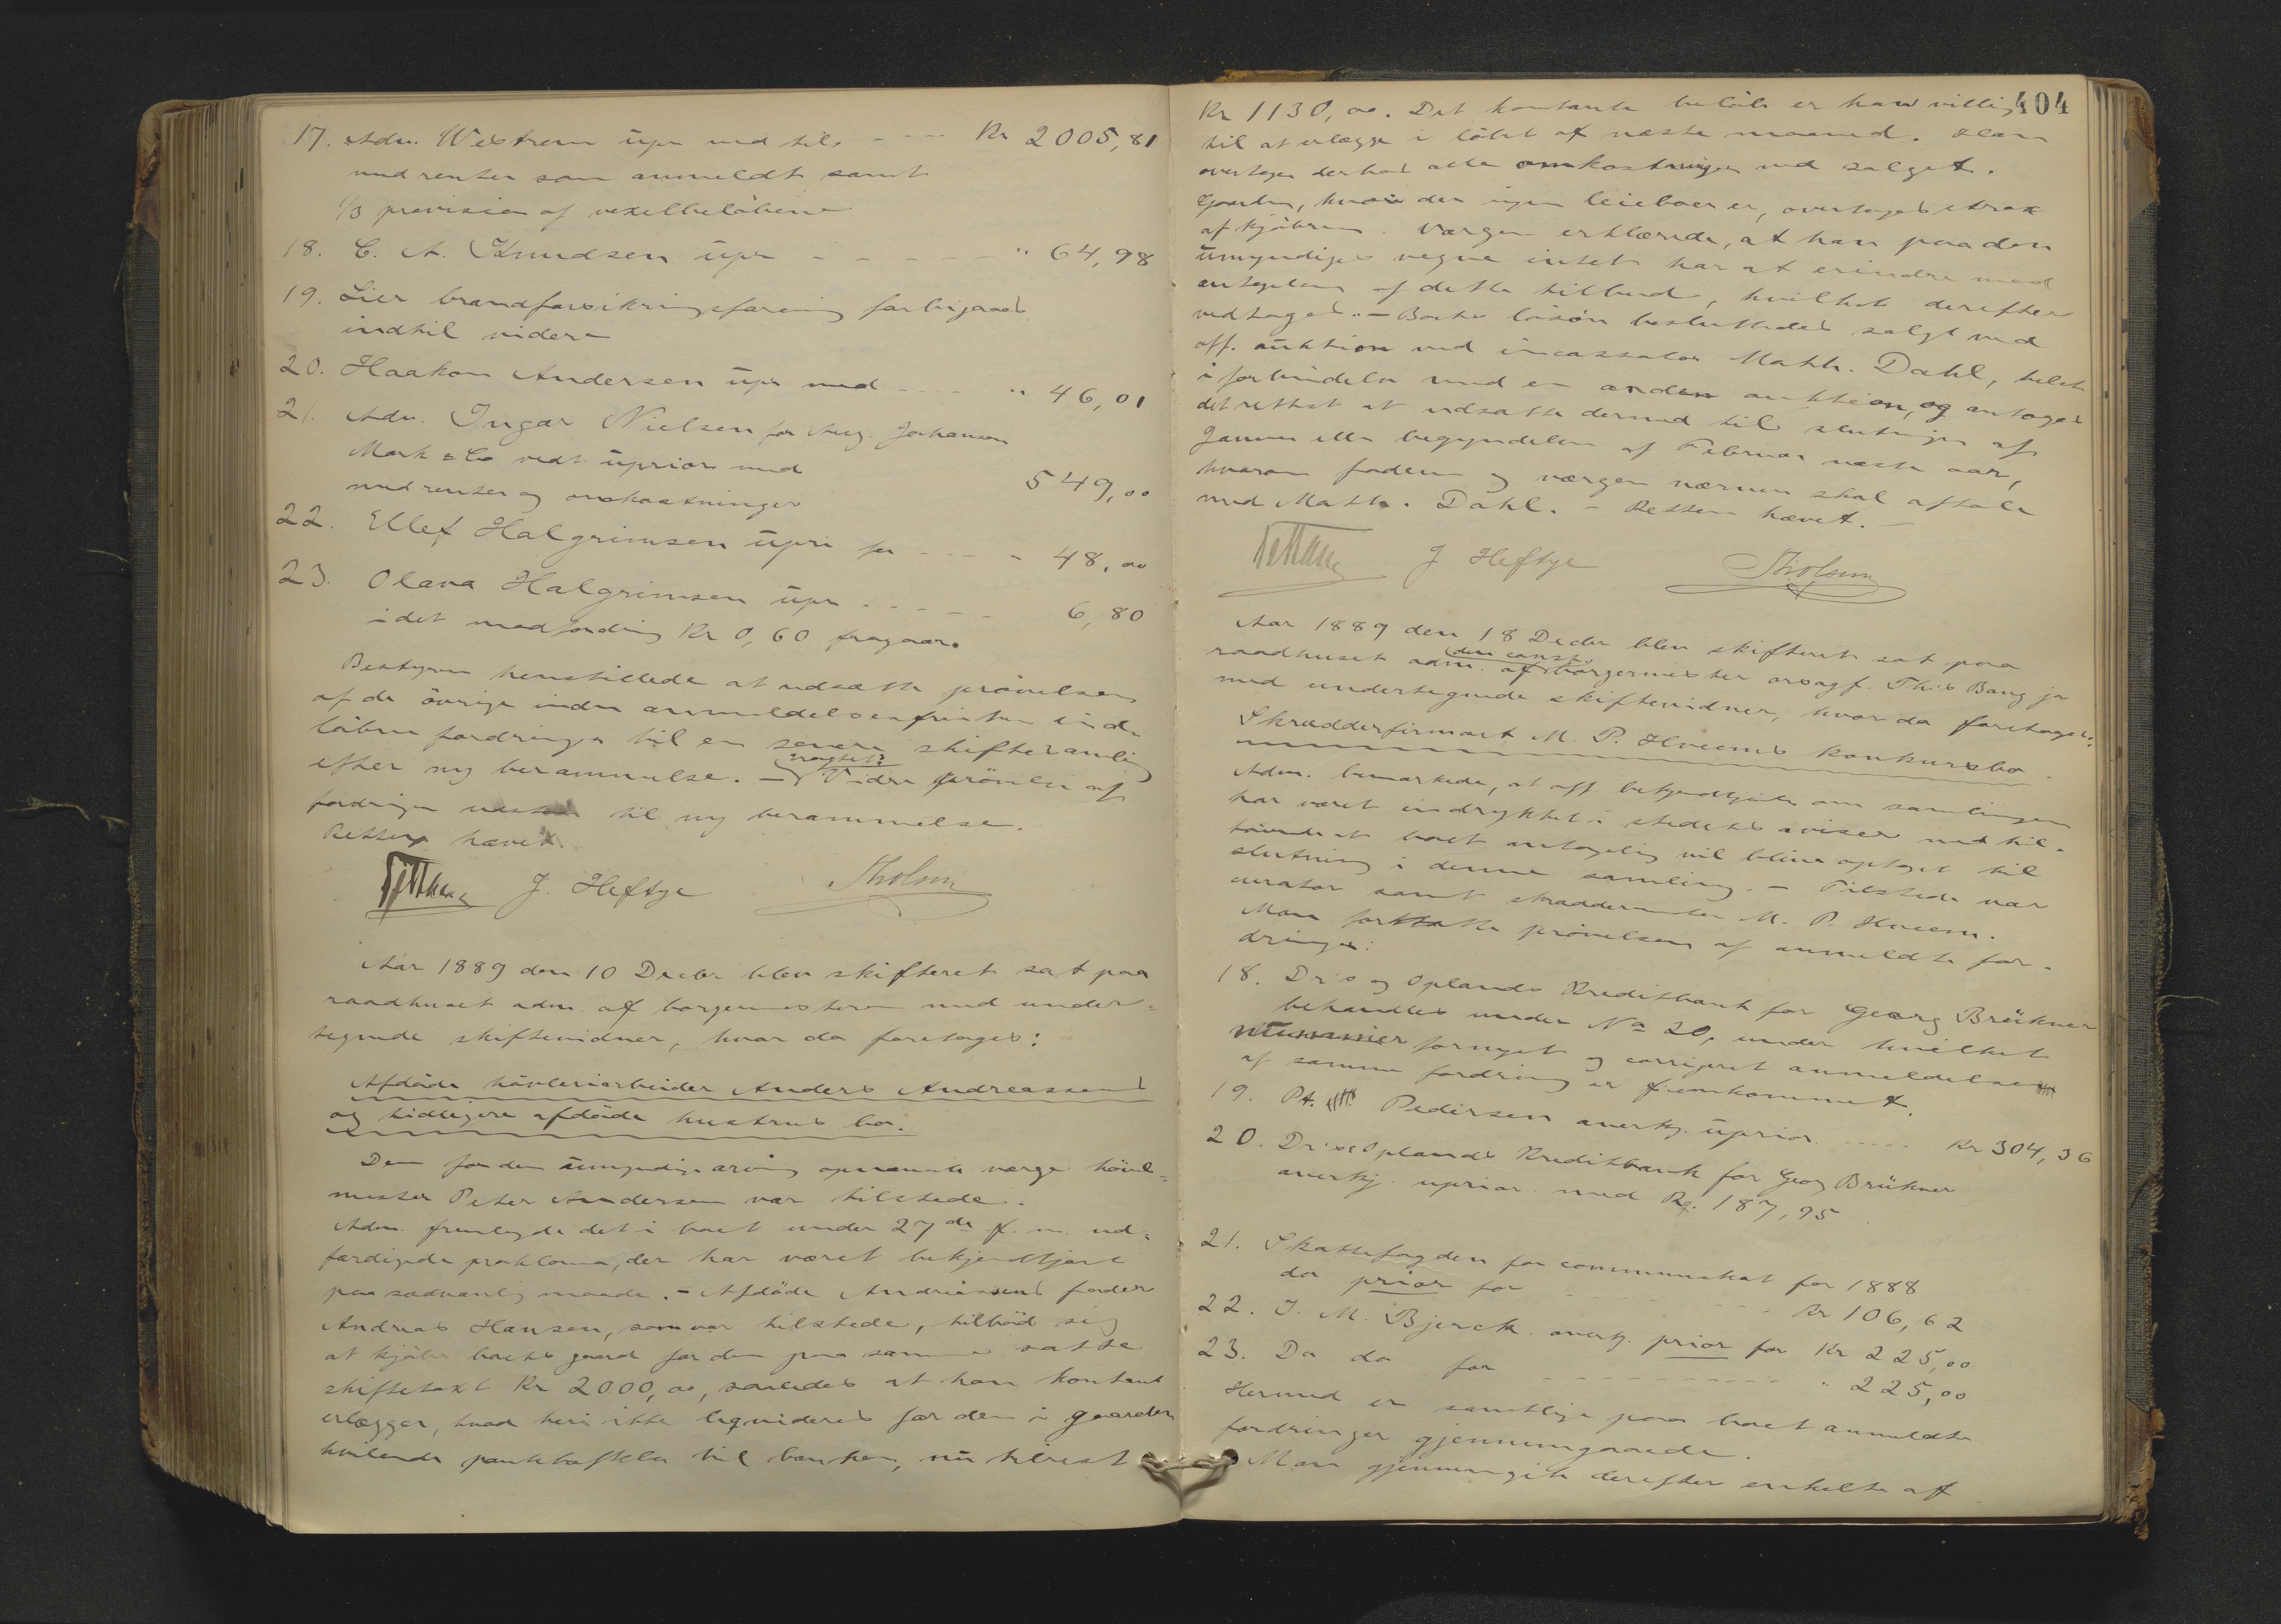 17. Adv. Wextrem upr med tils. - - - Kr 2005,81
med renter som anmeldt samt
1/3 provision af vexelbeløbene
18. C. A. Knudsen upr - - - - - " 64,98
19. Lier brandforsikringsforening forbigaaes
indtil videre
20. Haakon Andersen upr med - - - " 46,01
21. Adv. Ingar Nielsen for Aug. Johansen
Mork & Co vedt uprior med 549,00
med renter og omkostninger
22. Ellef Halgrimsen upri for - - - - 48,00
23. Olava Halgrimsen upr - - - - - 6,80
idet modfordring Kr 0,60 fragaar.
Bestyren henstillede at udsætte prøvelsen
af de øvrige inden anmeldelsesfristen ind-
løbne fordringer til en senere skiftesamling
efter ny berammelse. - Videre prøvelse af
fordringer udsat til ny berammelse.
Retten hævet.
J. Heftye Th. Olsen
Aar 1889 den 10 Decbr blev skifteret sat paa
raadhuset adm. af borgermesteren med under-
tegnede skiftevidner, hvor da foretoges:
Afdøde høvleriarbeider Anders Andreassens
og tidligere afdøde hustrus bo.
Den for den umyndige arving opnævnte verge høvel-
mester Peter Andersen var tilstede.
Adm. fremlagde det i boet under 27de f. m. ud-
færdigede proklama, der har været bekjendtgjort
paa sædvanlig maade. - Afdøde Andreassens fader
Andreas Hansen, som var tilstede, tilbød sig
at kjøbe boets gaard for den paa samme satte
skiftetaxt Kr 2000,00, saaledes at han kontant
erlægger, hvad heri ikke liqvideres for den i gaarden
hvilende pantheftelse til banken, nu tilrest
404
Kr 1130,00. Det kontante beløb er han villig
til at erlægge i løbet af næste maaned. Han
overtager derhos alle omkostninger ved salget.
Gaarden, hvori der ingen leieboer er, overtages strax
af kjøberen. Værgen erklærede, at han paa den
umyndiges vegne intet har at erindre mod
antagelsen af dette tilbud, hvilket derefter
vedtoges. - Boets løsøre besluttedes solgt ved
off. auktion ved incassator Math. Dahl, helst
i forbindelse med en anden auktion, og antoges
det rettest at udsætte dermed til slutningen af
Januar eller begyndelsen af Februar næste aar,
hvorom faderen og værgen nærmere skal aftale
med Math. Dahl. - Retten hævet. -
J Heftye Th. Olsen
Aar 1889 den 18 Decbr blev skifteret sat paa
den const.
raadhuset adm. af borgermester ovsagf. Ths Bang jr
med undertegnede skiftevidner, hvor da foretoges:
Skrædderfirmaet M. P. Hveems konkursbo.
Adm. bemærkede, at off. bekjendtgjørelse om samlingen
har været indrykket i stedets aviser med til-
føiende at boet antagelig vil blive optaget til
slutning i denne samling. - Tilstede var
curator samt skræddermester M. P. Hveem.
Man fortsatte prøvelsen af anmeldte for-
dringer:
18. Dr's og Oplands Kreditbank for Georg Brükner
behandles under No 20, under hvilket
nummer fornyet og corrigeret anmeldelse
af samme fordring er fremkommet.
19. Pt. Pedersen anerkj. uprior. - - - - Kr 304,36
20. Dr's & Oplands Kreditbank for Georg Brükner
anerkj. uprior. med Kr. 187,95
21. Skattefogden for communeskat for 1888
do prior for - - - - - - Kr 106,62
22. J. M. Bjerck. anerkj. prior for Kr 225,00
23. Do do for - - - - - - - - " 225,00
Hermed er samtlige paa boet anmeldte
fordringer gjennemgaaede.
Man gjennemgik derefter enkelte af